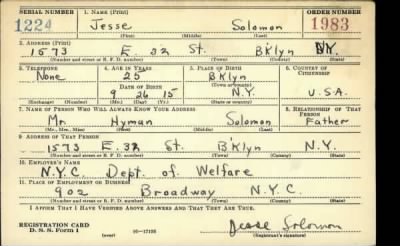 SERIAL NUMBER 1. NAME (Print) ORDER NUMBER
1224 Jesse Solomon 1983
(First) (Middle) (Last)
2. ADDRESS (Print)
1573 E. 32 St. B'klyn N.Y.
(Number and street or R. F. D. number) (Town) (County) (State)
3. TELEPHONE 4. AGE IN YEARS 5. PLACE OF BIRTH 6. COUNTRY OF CITIZENSHIP
None 25 BKlyn
DATE OF BIRTH (Town or county)
9 26 15 N.Y. U.S.A.
(Exchange) (Number) (Mo.) (Day) (Yr.) (State or country)
7. NAME OF PERSON WHO WILL ALWAYS KNOW YOUR ADDRESS 8. RELATIONSHIP OF THAT PERSON
Mr. Hyman Solomon Father
(Mr., Mrs., Miss) (First) (Middle) (Last)
9. ADDRESS OF THAT PERSON
1573 E. 32 St. B'klyn N.Y.
(Number and street or R. F. D. number) (Town) (County) (State)
10. EMPLOYER'S NAME
N.Y.C. Dept. of Welfare
11. PLACE OF EMPLOYMENT OR BUSINESS
902 Broadway N.Y.C.
(Number and street or R. F. D. number) (Town) (County) (State)
I AFFIRM THAT I HAVE VERIFIED ABOVE ANSWERS AND THAT THEY ARE TRUE.
REGISTRATION CARD
D. S. S. Form 1 (over) 16—17105 Jesse Solomon
(Registrant's signature)